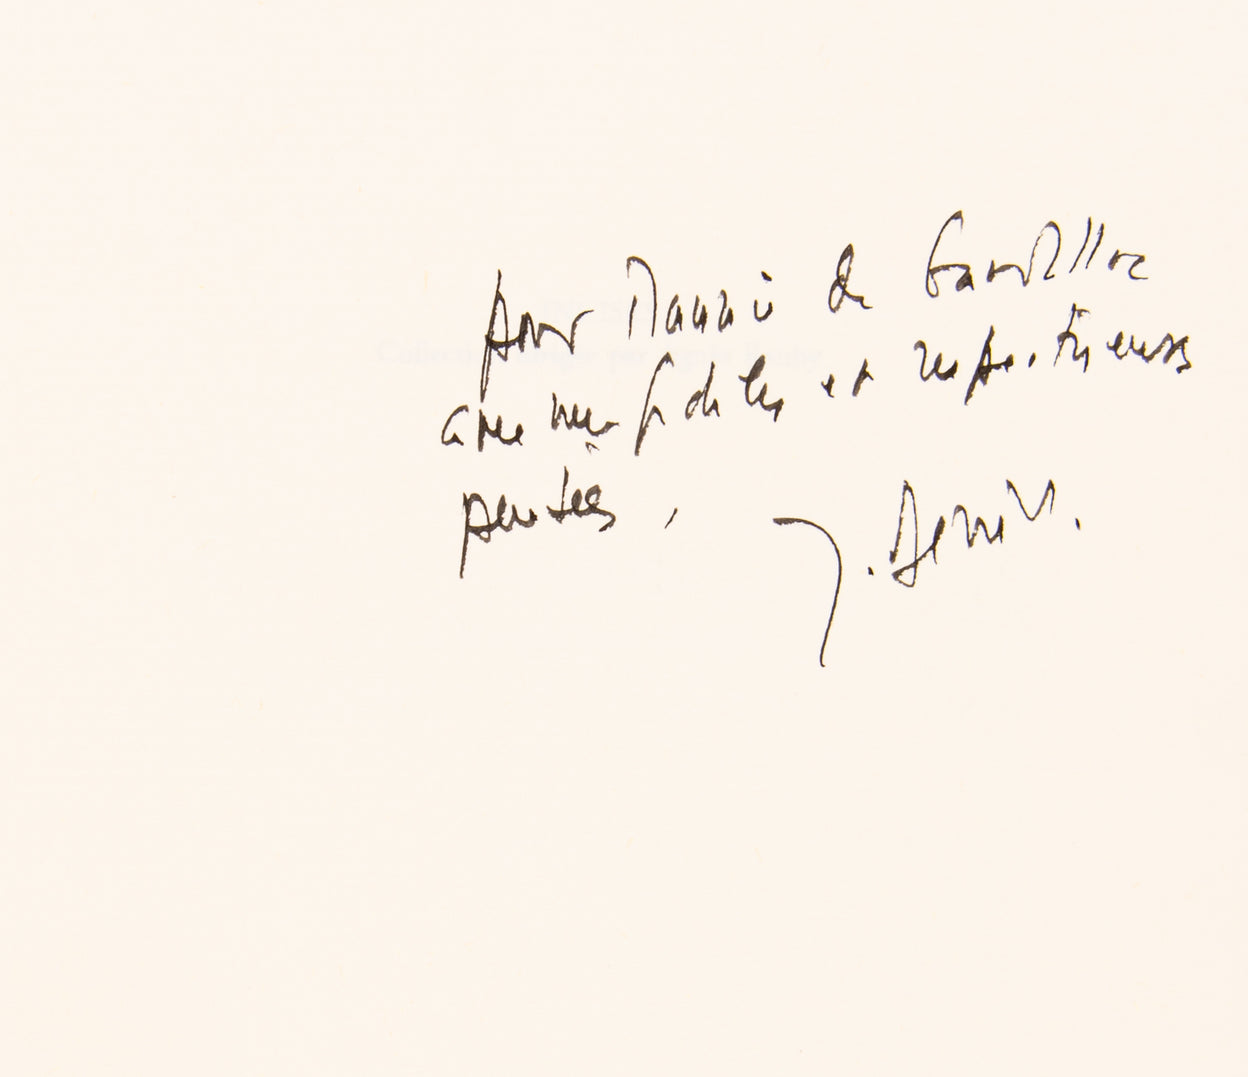 pour Maurice de Gandillac
avec mes fidèles et respectueuses
pensées,
J. Derrida.